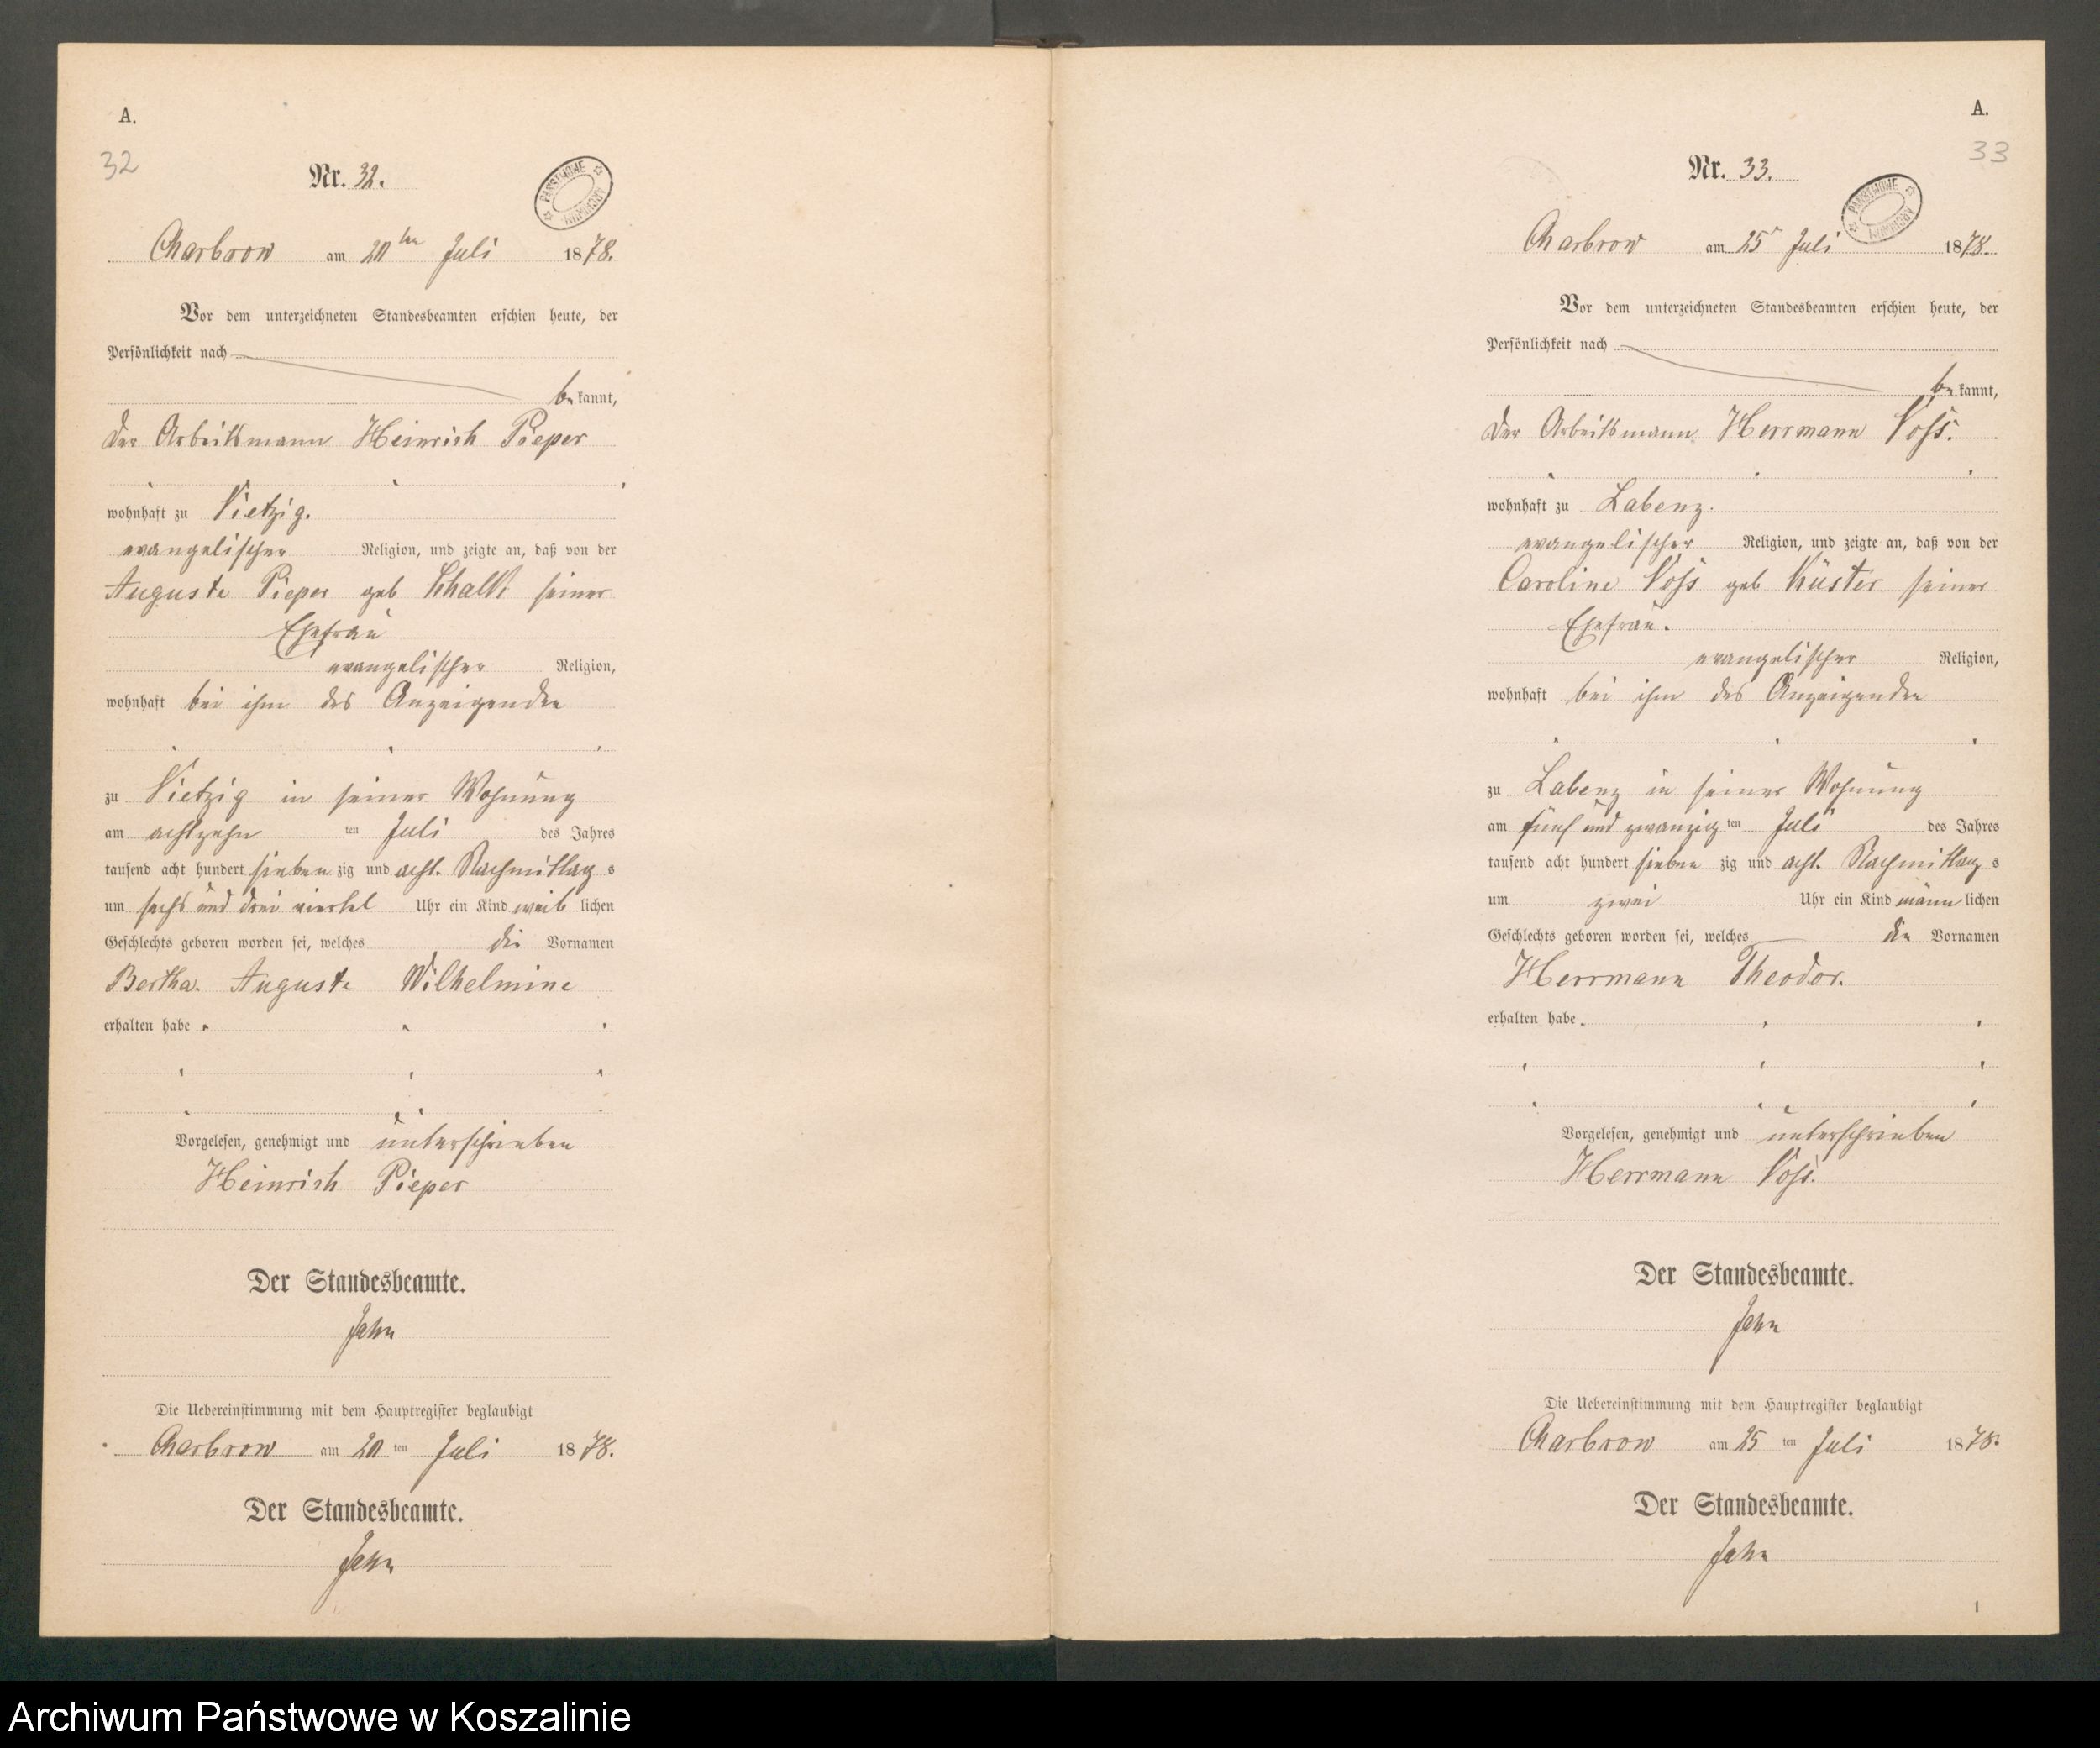 A.
32
Nr. 32.
PAŃSTWOWE ARCHIWUM
Charbrow am 20ten Juli 1878.
Vor dem unterzeichneten Standesbeamten erschien heute, der
Persönlichkeit nach
be kannt,
der Arbeitsmann Heinrich Pieper
wohnhaft zu Vietzig.
evangelischer Religion, und zeigte an, daß von der
Auguste Pieper geb seiner
Ehefrau
evangelischer Religion,
wohnhaft bei ihm des Anzeigenden
zu Vietzig in seiner Wohnung
am achtzehn ten Juli des Jahres
tausend acht hundert sieben zig und acht. Nachmittag s
um sechs und drei viertel Uhr ein Kind weib lichen
Geschlechts geboren worden sei, welches die Vornamen
Bertha. Auguste Wilhelmine
erhalten habe.
Vorgelesen, genehmigt und unterschrieben
Heinrich Pieper
Der Standesbeamte.
Jahn
Die Uebereinstimmung mit dem Hauptregister beglaubigt
Charbrow am 20 ten Juli 1878.
Der Standesbeamte.
Jahn
A.
33
Nr. 33.
PAŃSTWOWE ARCHIWUM
Charbrow am 25 Juli 1878.
Vor dem unterzeichneten Standesbeamten erschien heute, der
Persönlichkeit nach
be kannt,
der Arbeitsmann Herrmann Voß.
wohnhaft zu Labenz.
evangelischer Religion, und zeigte an, daß von der
Caroline Voß geb Küster seiner
Ehefrau.
evangelischer Religion,
wohnhaft bei ihm des Anzeigenden
zu Labenz in seiner Wohnung
am fünf und zwanzig ten Juli des Jahres
tausend acht hundert sieben zig und acht. Nachmittag s
um zwei Uhr ein Kind männ lichen
Geschlechts geboren worden sei, welches die Vornamen
Herrmann Theodor.
erhalten habe.
Vorgelesen, genehmigt und unterschrieben
Herrmann Voß.
Der Standesbeamte.
Jahn
Die Uebereinstimmung mit dem Hauptregister beglaubigt
Charbrow am 25 ten Juli 1878.
Der Standesbeamte.
Jahn
1
Archiwum Państwowe w Koszalinie